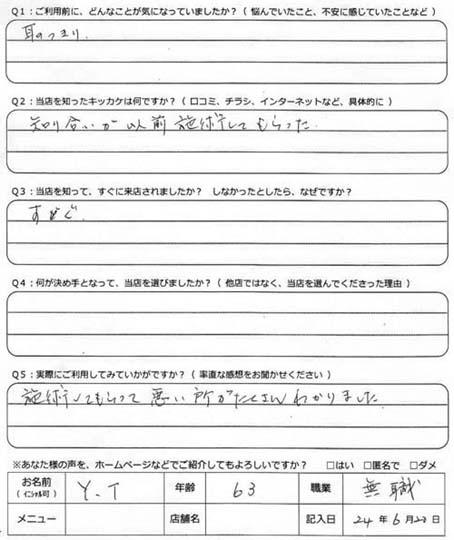 Q1：ご利用前に、どんなことが気になっていましたか？（ 悩んでいたこと、不安に感じていたことなど ）
耳のつまり.
Q2：当店を知ったキッカケは何ですか？（ 口コミ、チラシ、インターネットなど、具体的に ）
知り合いが以前施術してもらった.
Q3：当店を知って、すぐに来店されましたか？　しなかったとしたら、なぜですか？
すぐ.
Q4：何が決め手となって、当店を選びましたか？（ 他店ではなく、当店を選んでくださった理由 ）
Q5：実際にご利用してみていかがですか？（ 率直な感想をお聞かせください ）
施術してもらって悪い所がたくさんわかりました
※あなた様の声を、ホームページなどでご紹介してもよろしいですか？　□はい　□匿名で　□ダメ
お名前（ イニシャル可 ） Y.T 年齢 63 職業 無職
メニュー 店舗名 記入日 24年6月23日